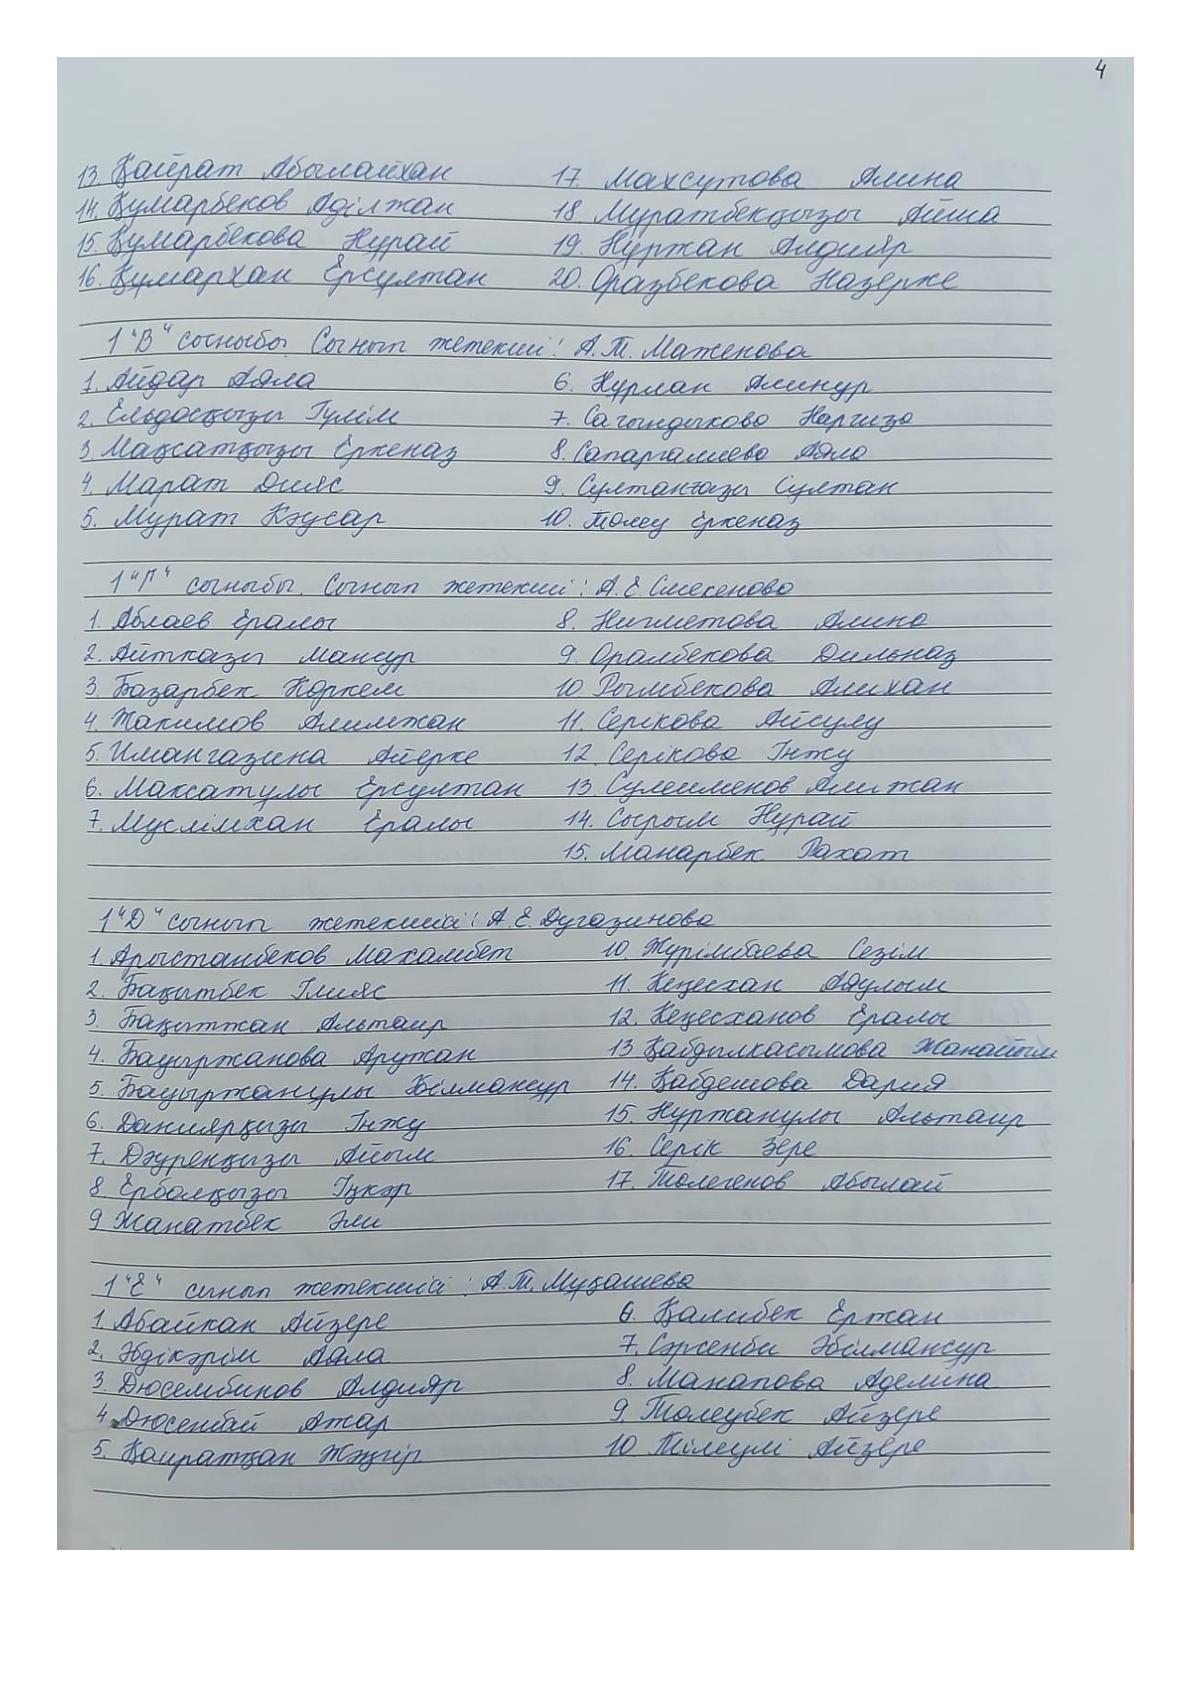 4
13. Қайрат Абылайхан
14. Қумарбеков Аділжан
15. Қумарбекова Нұрай
16. Қумархан Ерсұлтан
17. Махсутова Алина
18 Муратбекқызы Айша
19. Нұржан Алдияр
20. Оразбекова Назерке
1 "В" сыныбы. Сынып жетекші: А.Т. Маженова
1. Айдар Аяла
2. Ельдосқызы Гүлім
3 Мақсатқызы Еркеназ
4. Марат Дияс
5. Мұрат Кәусар
6. Нұрлан Алинұр
7. Сағындыкова Наргиза
8. Сапаргалиева Аяла
9. Сұлтанғазы Сұлтан
10. Толеу Еркеназ
1 "Г" сыныбы. Сынып жетекші: А.Е.Смекенова
1. Аблаев Ералы
2. Айтказы Мансур
3. Базарбек Көркем
4. Жакимов Алимжан
5. Имангазина Айерке
6. Максатұлы Ерсұлтан
7. Мұслімхан Ералы
8. Нигметова Алина
9. Оралбекова Дильназ
10 Рымбекова Алихан
11. Серікова Айсұлу
12. Серікова Інжу
13. Сулейменов Алижан
14. Сырым Нұрай
15. Манарбек Рахат
1 "Д" сынып жетекшісі: А.Е.Дугазинова
1. Арыстанбеков Махамбет
2. Бақытбек Ілияс
3. Бақытжан Альтаир
4. Бауыржанова Аружан
5. Бауыржанұлы Әбілмансұр
6. Даниярқызы Інжу
7. Дәуренқызы Айым
8 Ерболқызы Іңкәр
9 Жанатбек Әли
10. Жүрімбаева Сезім
11. Кеңесхан Аяулым
12. Кеңесханов Ералы
13 Қабдылкасымова Жанайым
14. Қабдешова Дария
15. Нұржанұлы Альтаир
16. Серік Зере
17. Төлегенов Абылай
1 "Е" сынып жетекшісі: А.Т. Мұқашева
1 Абайхан Айзере
2. Әбдікәрім Аяла
3. Дюсембинов Алдияр
4 Дюсенбай Ажар
5. Қайратжан Жәңгір
6. Қалибек Ержан
7. Сәрсенби Әбілмансұр
8. Манапова Аделина
9. Төлеубек Айзере
10 Тілеулі Айзере